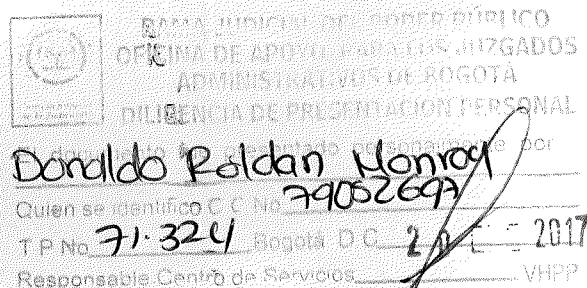 RAMA JUDICIAL DEL PODER PÚBLICO
OFICINA DE APOYO PARA LOS JUZGADOS
ADMINISTRATIVOS DE BOGOTÁ
DILIGENCIA DE PRESENTACION PERSONAL
El documento fue presentado personalmente por
Donaldo Roldan Monroy
Quien se identifico C.C. No. 79052697
T.P No. 71.324 Bogotá D.C. 2017
Responsable Centro de Servicios VHPP